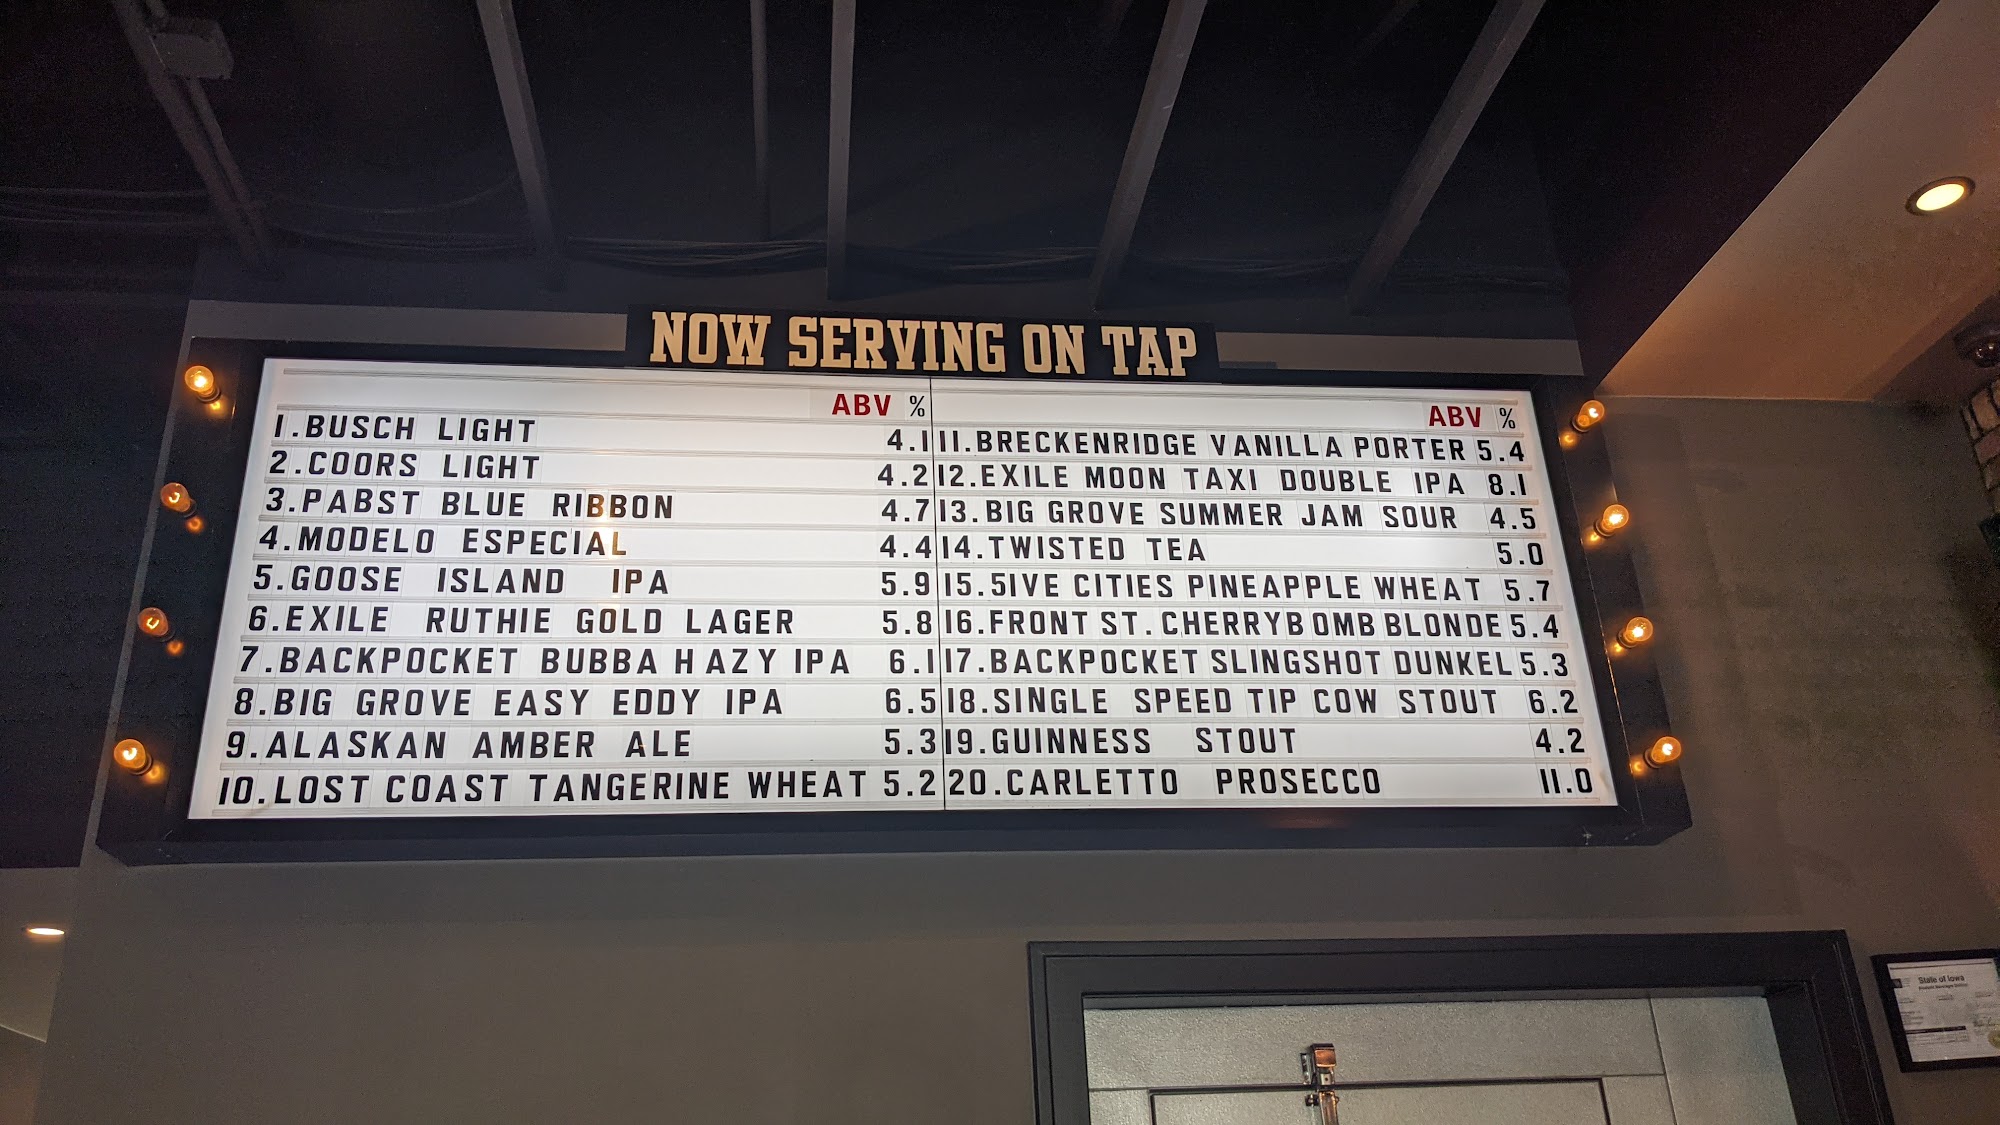 NOW SERVING ON TAP
ABV %
1.BUSCH LIGHT 4.1
2.COORS LIGHT 4.2
3.PABST BLUE RIBBON 4.7
4.MODELO ESPECIAL 4.4
5.GOOSE ISLAND IPA 5.9
6.EXILE RUTHIE GOLD LAGER 5.8
7.BACKPOCKET BUBBA HAZY IPA 6.1
8.BIG GROVE EASY EDDY IPA 6.5
9.ALASKAN AMBER ALE 5.3
10.LOST COAST TANGERINE WHEAT 5.2
ABV %
11.BRECKENRIDGE VANILLA PORTER 5.4
12.EXILE MOON TAXI DOUBLE IPA 8.1
13.BIG GROVE SUMMER JAM SOUR 4.5
14.TWISTED TEA 5.0
15.5IVE CITIES PINEAPPLE WHEAT 5.7
16.FRONT ST.CHERRYBOMB BLONDE 5.4
17.BACKPOCKET SLINGSHOT DUNKEL 5.3
18.SINGLE SPEED TIP COW STOUT 6.2
19.GUINNESS STOUT 4.2
20.CARLETTO PROSECCO 11.0
State of Iowa